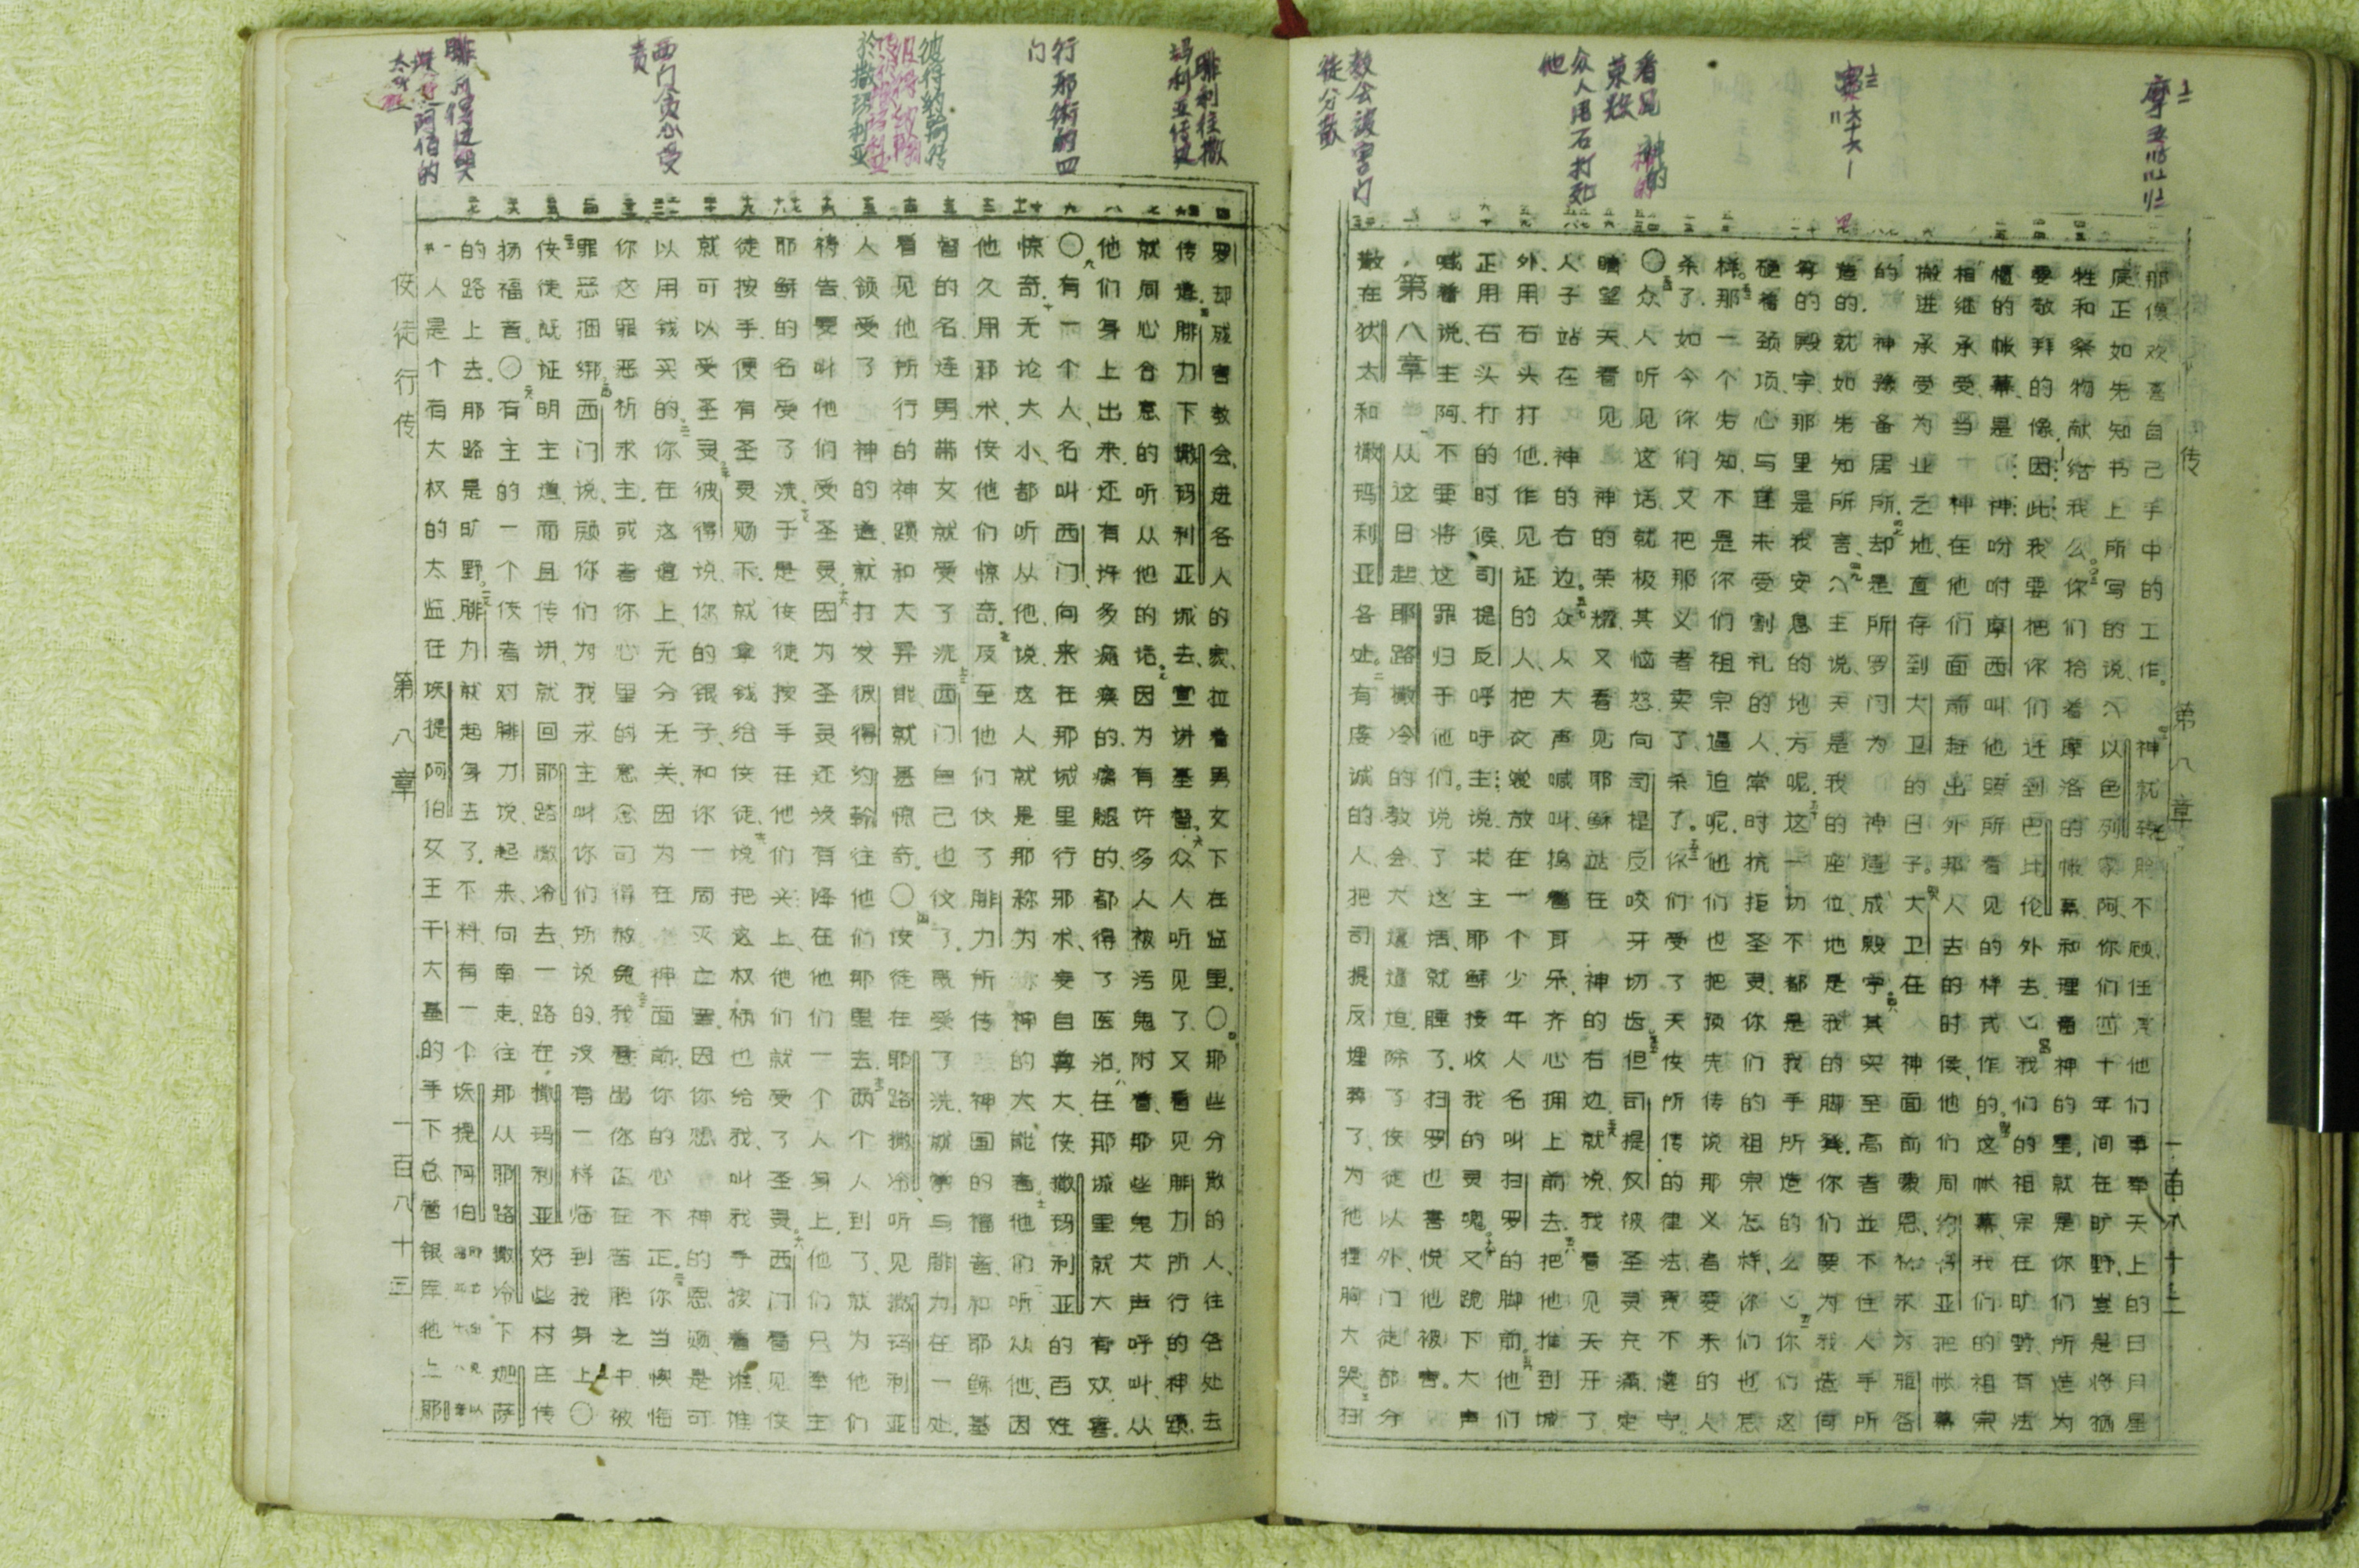 摩
看见 神的
荣耀
众人用石打死
他
教会被害门
徒分散
那像欢喜自己手中的工作。神就转脸不顾、任凭他们事奉天上的日月星
辰、正如先知书上所写的说、以色列家阿、你们四十年间在旷野、岂是将牺
牲和祭物献给我么。你们抬着摩洛的帐幕和理番神的星、就是你们所造为
要敬拜的像、因此我要把你们迁到巴比伦外去。我们的祖宗在旷野有法
柜的帐幕、是神吩咐摩西叫他照所看见的样式作的。这帐幕我们的祖宗
相继承受、当神在他们面前赶出外邦人去的时候、他们同约书亚把帐幕
搬进承受为业之地、直存到大卫的日子。大卫在神面前蒙恩、祈求为雅各
的神豫备居所、却是所罗门为神造成殿宇。其实至高者並不住人手所
造的、就如先知所言、主说、天是我的座位、地是我的脚凳、你们要为我造何
等的殿宇、那里是我安息的地方呢。这一切不都是我手所造的么。你们这
硬着颈项、心与耳未受割礼的人、常时抗拒圣灵、你们的祖宗怎样、你们也怎
样。那一个先知、不是你们祖宗逼迫呢。他们也把预先传说那义者要来的人
杀了、如今你们又把那义者卖了、杀了。你们受了天使所传的律法、竟不遵守。
○众人听见这话、就极其恼怒、向司提反咬牙切齿。但司提反被圣灵充满、定
睛望天、看见神的荣耀、又看见耶稣站在神的右边、就说、我看见天开了
人子站在神的右边。众人大声喊叫、捂着耳朵、齐心拥上前去、把他推到城
外、用石头打他。作见证的人、把衣裳放在一个少年人名叫扫罗的脚前。他们
正用石头打的时候、司提反呼吁主说、求主耶稣接收我的灵魂。又跪下大声
喊着说、主阿、不要将这罪归于他们。说了这话、就睡了。扫罗也喜悦他被害。
第八章 从这日起、耶路撒冷的教会、大遭逼迫、除了使徒以外、门徒都分
散在犹太和撒玛利亚各处。有虔诚的人、把司提反埋葬了、为他捶胸大哭。扫
传 第八章 一百八十二
腓利往撒
玛利亚传道
行邪術的西
门
彼得约翰传
於撒玛利亚
西门贪心受
责
罗却残害教会、进各人的家、拉着男女下在监里。○那些分散的人、往各处去
传道。腓力下撒玛利亚城去、宣讲基督。众人听见了、又看见腓力所行的神蹟
就同心合意的听从他的话。因为有许多人被污鬼附着、那些鬼大声呼叫、从
他们身上出来、还有许多瘫痪的、瘸腿的、都得了医治。在那城里就大有欢喜。
○有一个人、名叫西门、向来在那城里行邪术、妄自尊大、使撒玛利亚的百姓
惊奇、无论大小、都听从他、说、这人就是那称为神的大能者。他们听从他、因
他久用邪术、使他们惊奇。及至他们信了腓力所传神国的福音、和耶稣基
督的名、连男带女就受了洗。西门自己也信了、既受了洗、就常与腓力在一处、
看见他所行的神蹟和大异能、就甚惊奇。○使徒在耶路撒冷听见撒玛利亚
人领受了神的道、就打发彼得约翰往他们那里去。两个人到了、就为他们
祷告、要叫他们受圣灵、因为圣灵还没有降在他们一个人身上、他们只奉主
耶稣的名受了洗、于是使徒按手在他们头上、他们就受了圣灵。西门看见使
徒按手、便有圣灵赐下、就拿钱给使徒、说、把这权柄也给我、叫我手按着谁、谁
就可以受圣灵。彼得说、你的银子、和你一同灭亡罢、因你想神的恩赐是可
以用钱买的。你在这道上、无分无关、因为在神面前、你的心不正。你当懊悔
你这罪恶、祈求主、或者你心里的意念可得赦免。我看出你正在苦胆之中、被
罪恶捆绑。西门说、愿你们为我求主、叫你们所说的、没有一样临到我身上○
使徒既证明主道、而且传讲、就回耶路撒冷去、一路在撒玛利亚好些村庄传
扬福音。○有主的一个使者对腓力说、起来、向南走、往那从耶路撒冷下迦萨
的路上去。那路是旷野。腓力就起身去了、不料、有一个埃提阿伯
人是个有大权的太监、在埃提阿伯女王干大基的手下总管银库、他上耶
使徒行传 第八章 一百八十三